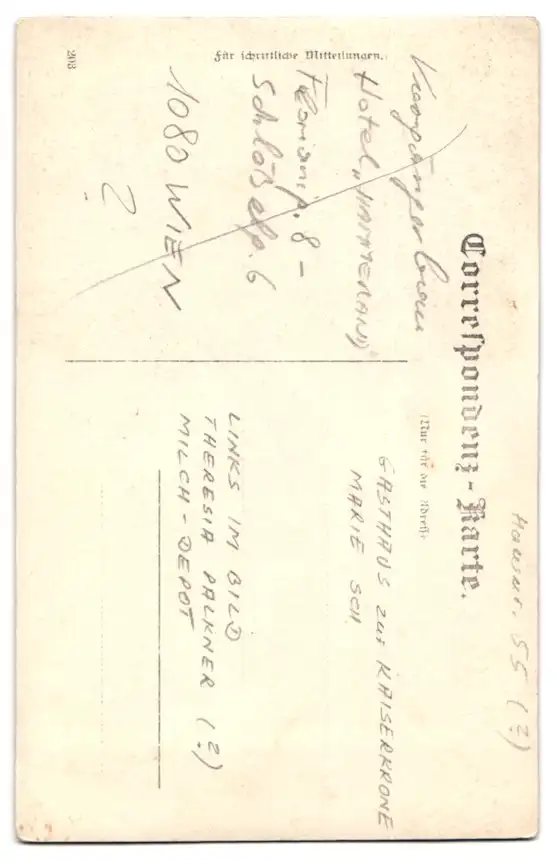 Hausnr. 55 (?)
Correspondenz-Karte.
Für schriftliche Mitteilungen.
(Nur für die Adresse
Hotel "HAMMERAND"
Florianig. 8 -
Schlößelg. 6
1080 WIEN
2
GASTHAUS zur KAISERKRONE
MARIE SCH.
LINKS IM BILD
THERESIA PALKNER (?)
MILCH-DEPOT
203